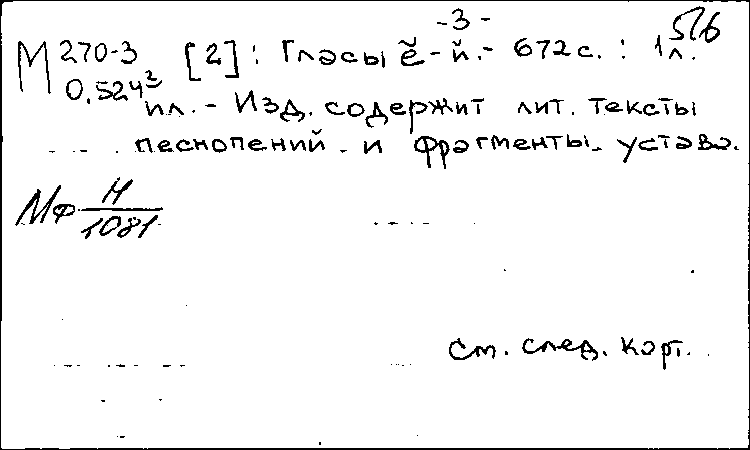 -3-
516
М 270-3 [2]: Гласы ӗ - й. - 672 с. : 1 л.
0.524²
ил. - Изд. содержит лит. тексты
песнопений и фрагменты устава.
Мф Н/1081
См. след. карт.